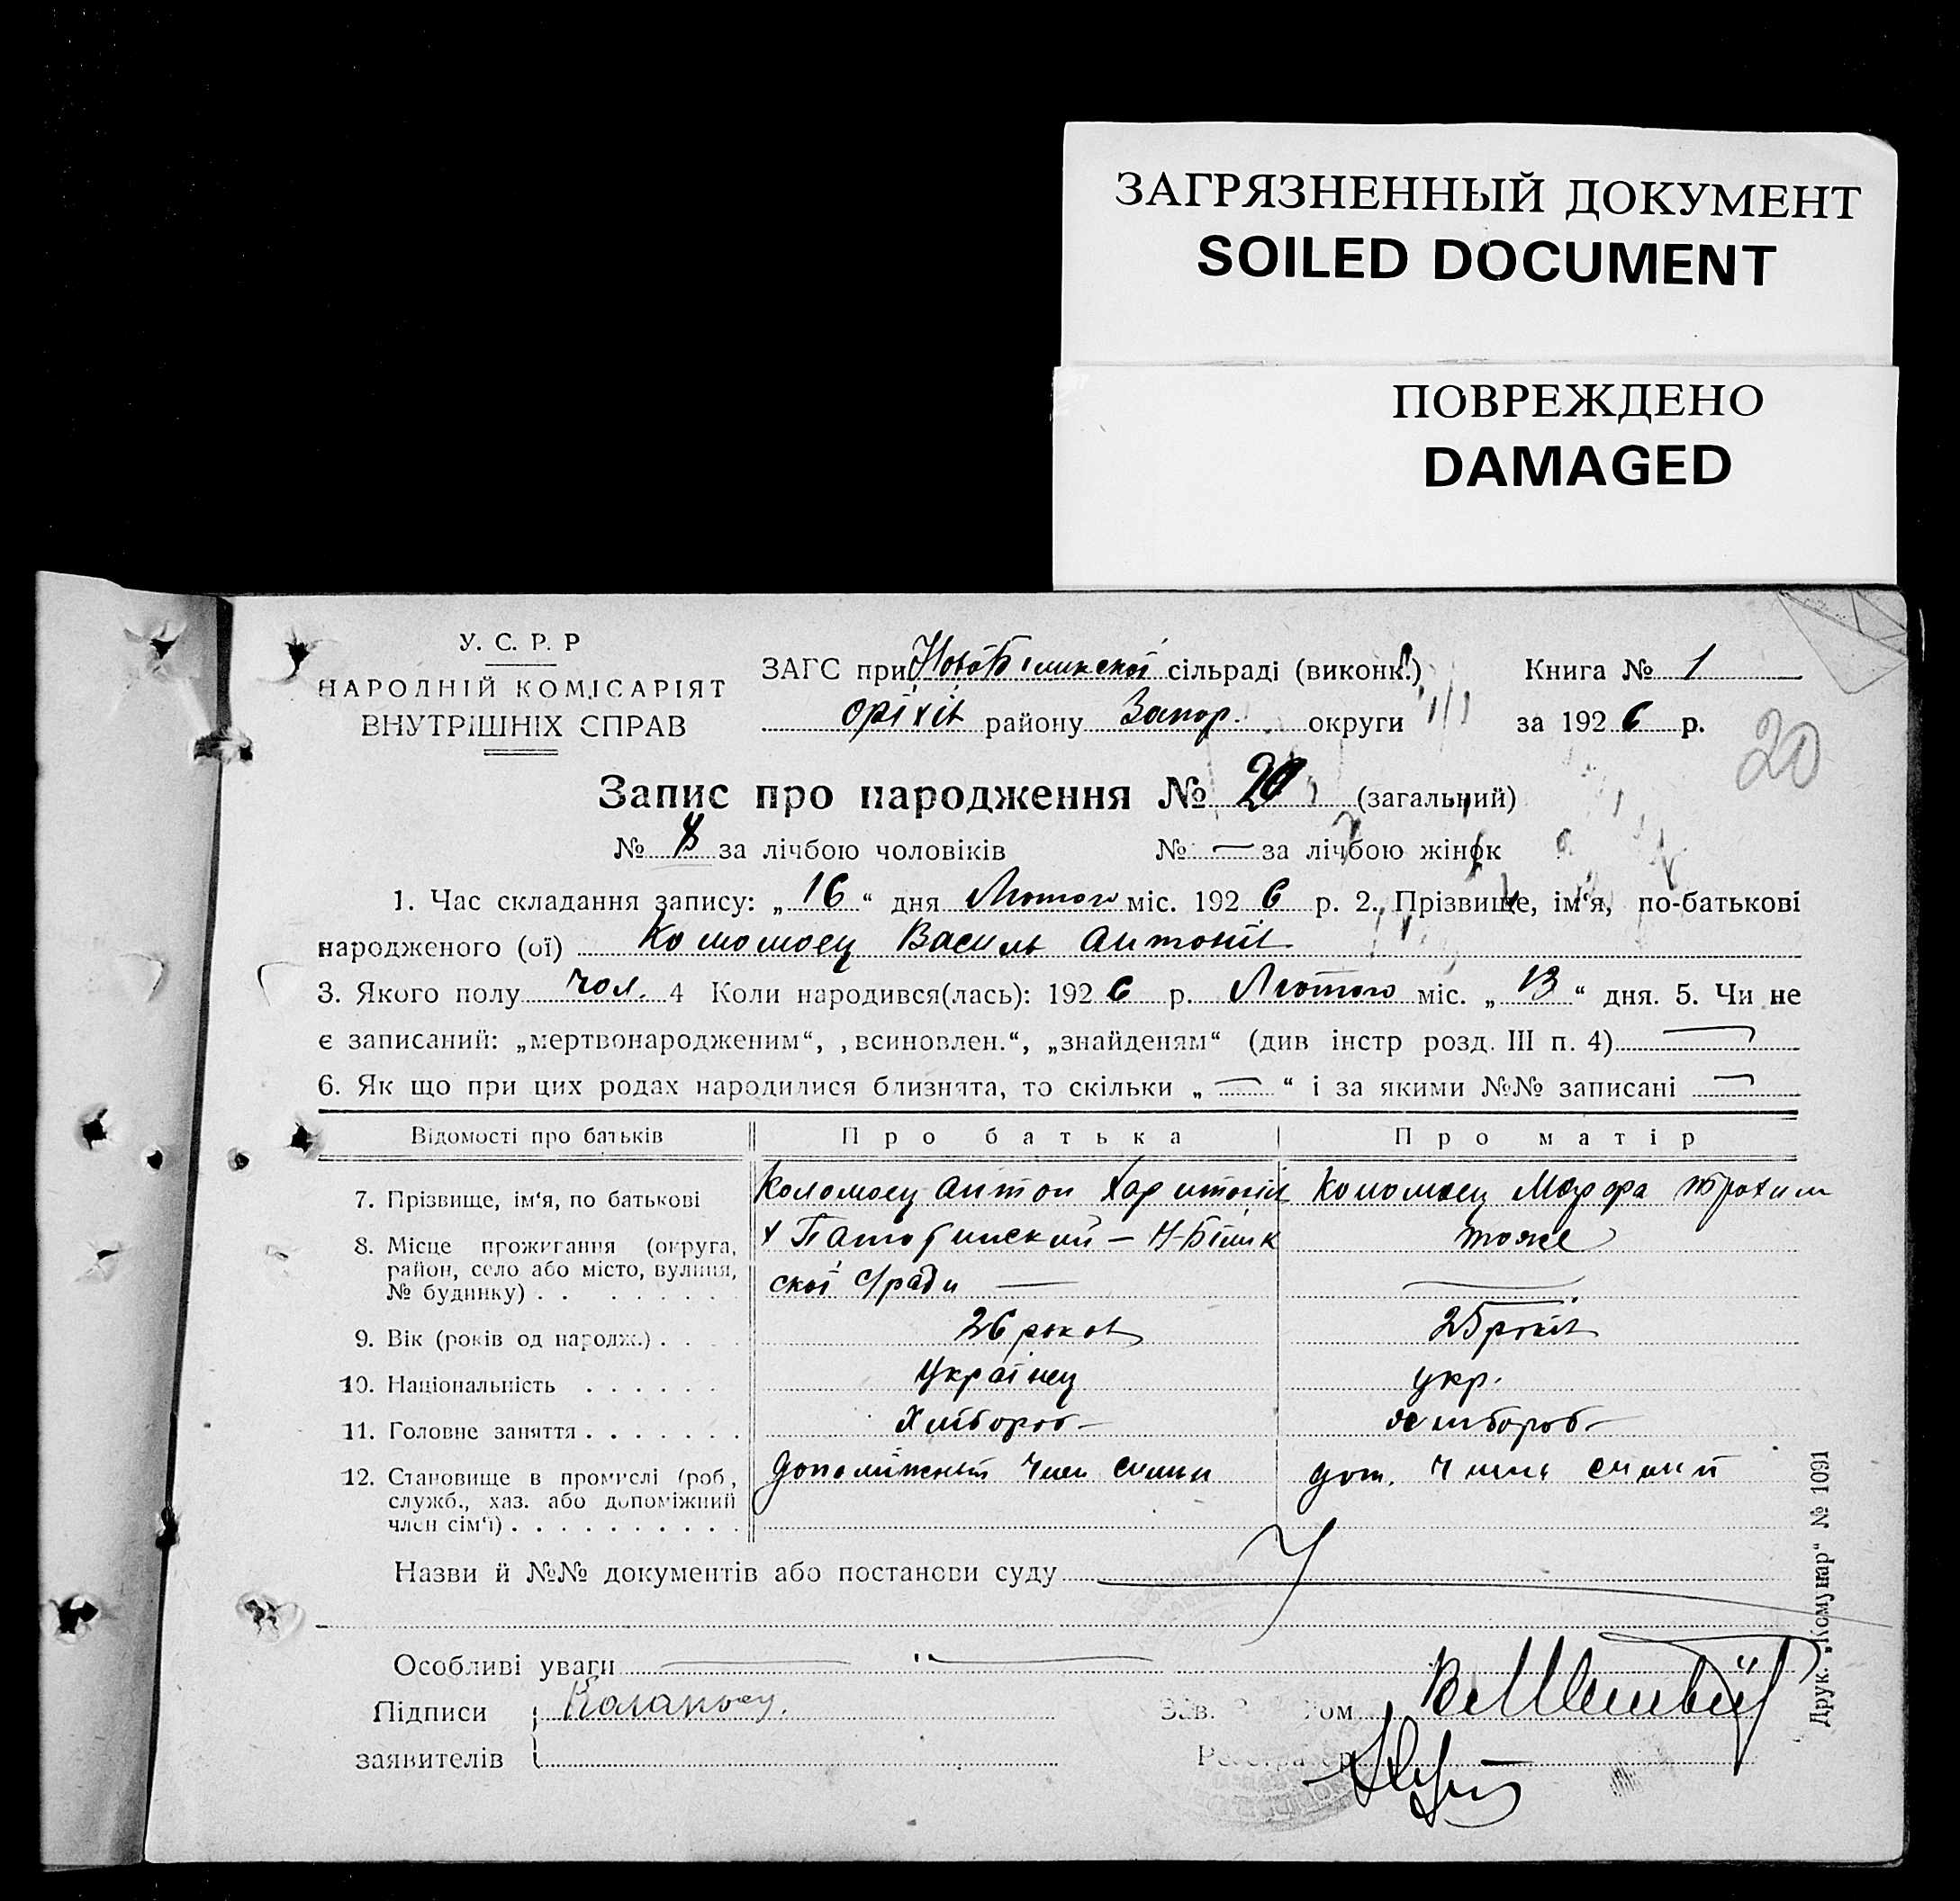 ЗАГРЯЗНЕННЫЙ ДОКУМЕНТ
SOILED DOCUMENT
ПОВРЕЖДЕНО
DAMAGED
У. С. Р. Р
НАРОДНІЙ КОМІСАРІЯТ
ВНУТРІШНІХ СПРАВ
ЗАГС при сільраді (виконк.) Книга № 1
Оріхів району Запор. округи за 1926 р.
20
Запис про народження № 20 (загальний)
№ 8 за лічбою чоловіків № — за лічбою жінок
1. Час складання запису: „16“ дня Лютого міс. 1926 р. 2. Прізвище, ім‘я, по-батькові
народженого (ої) Коломоец Василь Антонів
3. Якого полу чол. 4 Коли народився(лась): 1926 р. Лютого міс. „13“ дня. 5. Чи не
є записаний: „мертвонародженим“, „всиновлен.“, „знайденям“ (див інстр розд. III п. 4) —
6. Як що при цих родах народилися близнята, то скільки „—“ і за якими №№ записані —
Відомості про батьків Про батька Про матір
7. Прізвище, ім‘я, по батькові Коломоец Антон Харитонів Коломоец Марфа Трохим
8. Місце проживання (округа, район, село або місто, вулиця, № будинку) . . . . . . . . . тоже
ской с/ради —
9. Вік (років од народж.) . . . 26 роков 25 років
10. Національність . . . . . . Українец укр.
11. Головне заняття . . . . . . . Хлібороб — хлібороб —
12. Становище в промислі (роб., служб., хаз. або допоміжний член сім‘ї) . . . . . . . . . . допоміжний член семьи доп. член семьи
Назви й №№ документів або постанови суду
Особливі уваги — " —
Підписи Коломоец.
заявителів
Зав. ом
Реєстратор
Друк. „Комунар“ № 1091